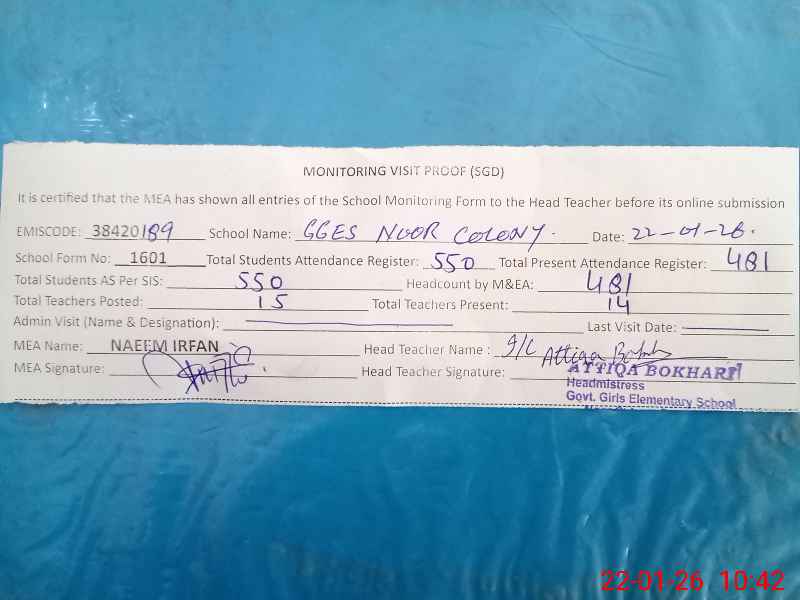 MONITORING VISIT PROOF (SGD)
It is certified that the MEA has shown all entries of the School Monitoring Form to the Head Teacher before its online submission
EMISCODE: 38420189 School Name: GGES NOOR COLONY. Date: 22-01-26.
School Form No: 1601 Total Students Attendance Register: 550 Total Present Attendance Register: 481
Total Students AS Per SIS: 550 Headcount by M&EA: 481
Total Teachers Posted: 15 Total Teachers Present: 14
Admin Visit (Name & Designation): Last Visit Date:
MEA Name: NAEEM IRFAN Head Teacher Name : I/C Attiqa Bokhari
MEA Signature: Head Teacher Signature: ATTIQA BOKHARI
Headmistress
Govt. Girls Elementary School
22-01-26 10:42